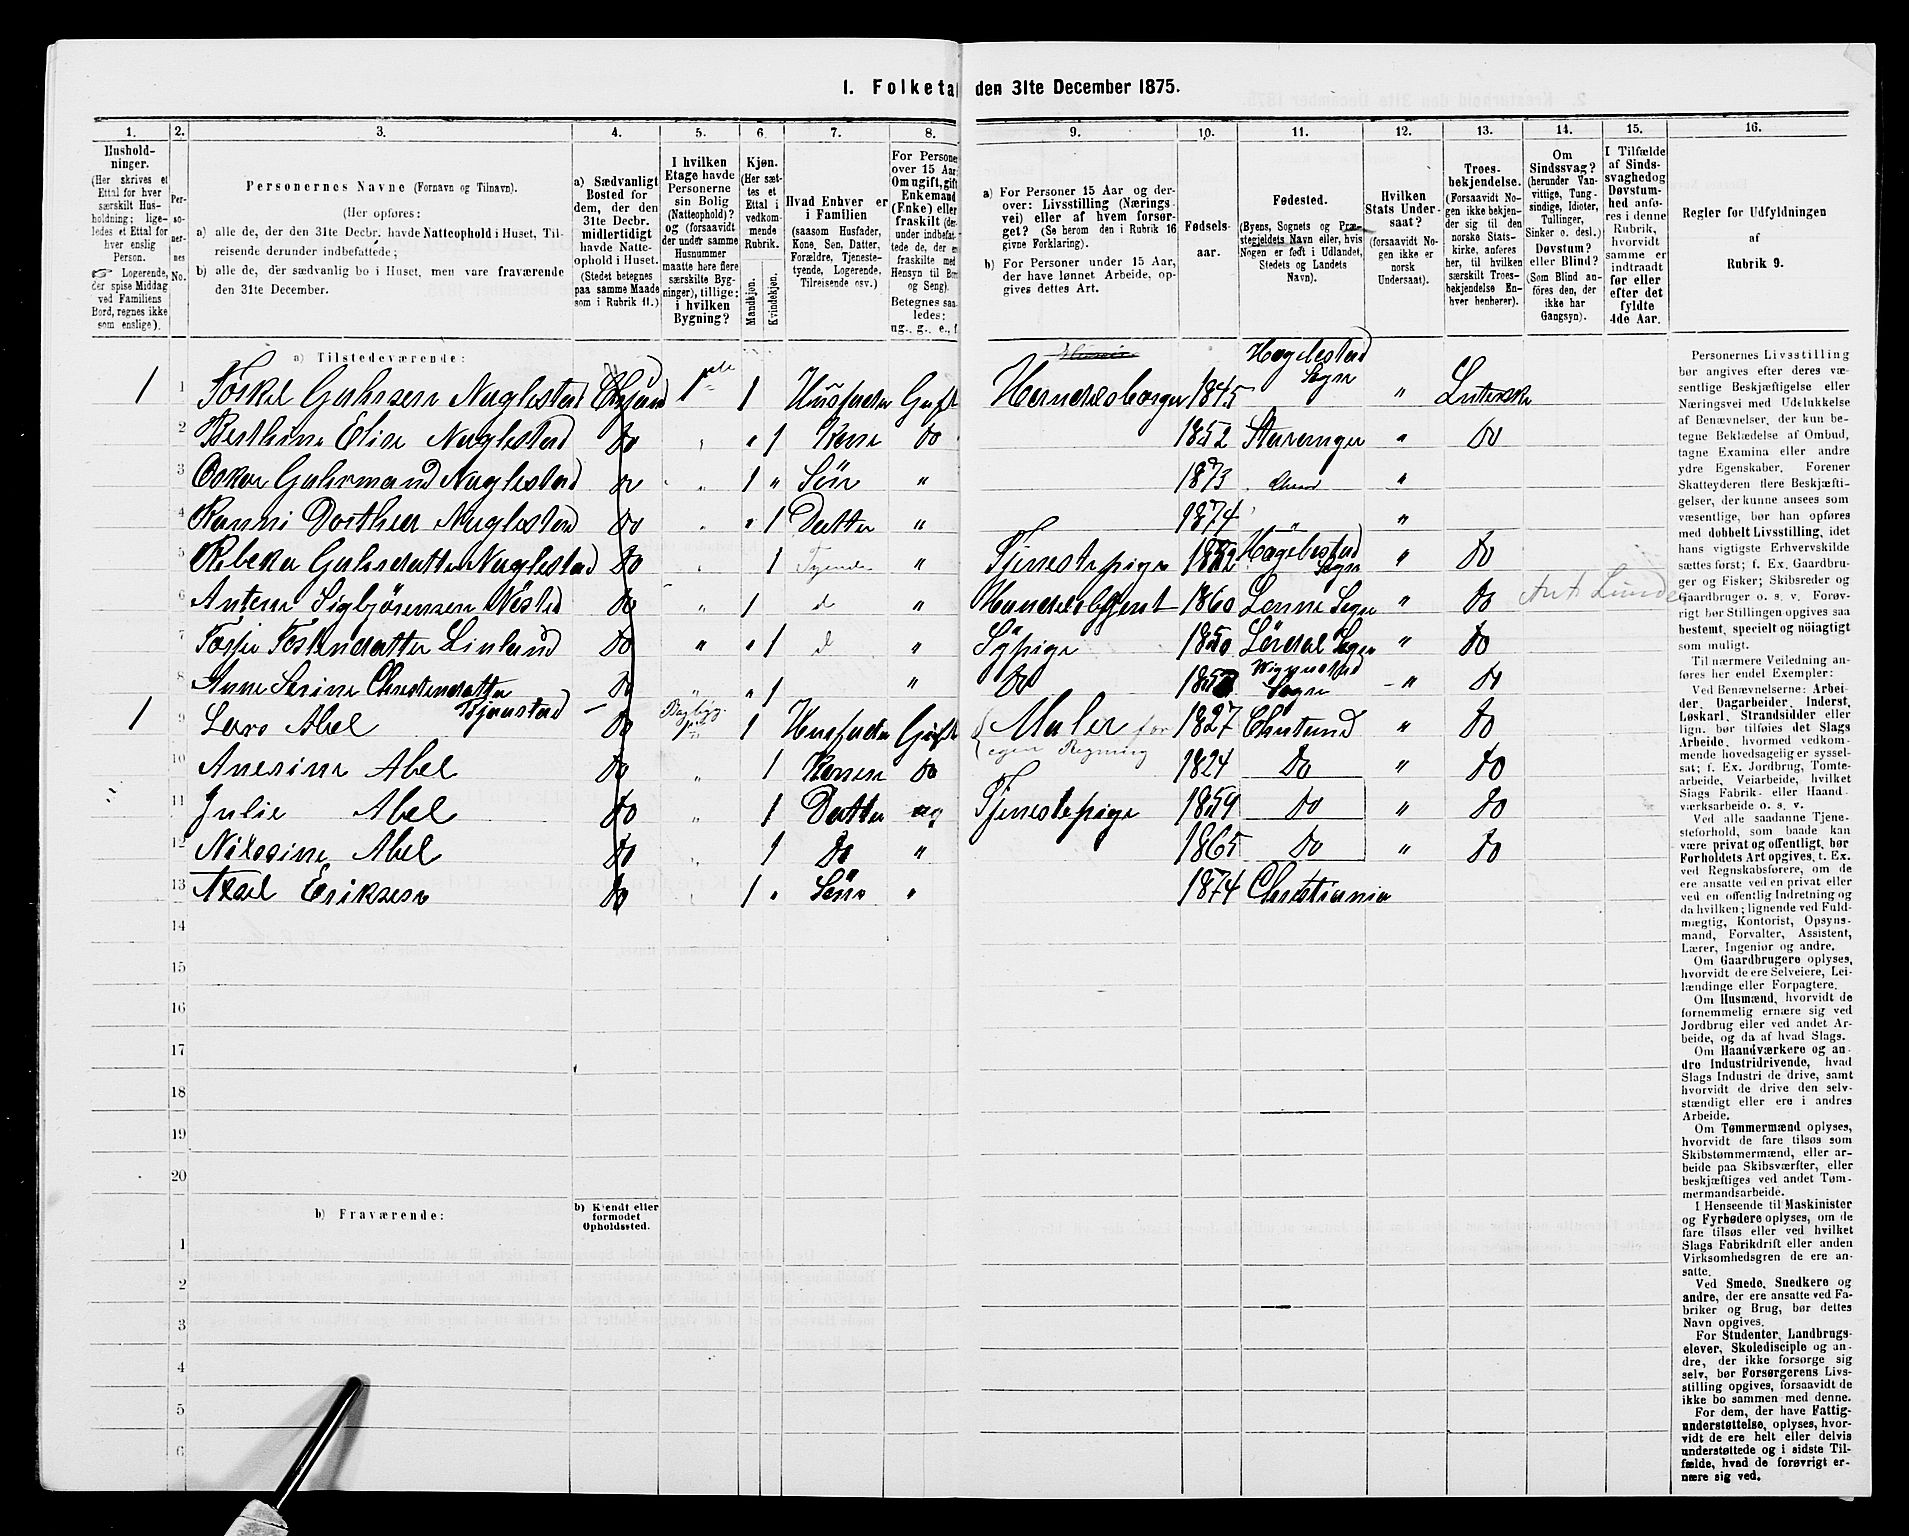 1. Folketa den 31te December 1875.
1. 2. 3. 4. 5. 6. 7. 8. 9. 10. 11. 12. 13. 14. 15. 16.
Hushold-
ninger.
(Her skrives et
Ettal for hver
særskilt Hus-
holdning; lige-
ledes et Ettal for
hver enslig
Person.
☞ Logerende,
der spise Middag
ved Familiens
Bord, regnes ikke
som enslige).
Per-
so-
ner-
nes
No.
Personernes Navne (Fornavn og Tilnavn).
(Her opføres:
a) alle de, der den 31te Decbr. havde Natteophold i Huset, Til-
reisende derunder indbefattede;
b) alle de, der sædvanlig bo i Huset, men vare fraværende
den 31te December.
a) Sædvanligt
Bosted for
dem, der den
31te Decbr.
midlertidigt
havde Natte-
ophold i Huset.
(Stedet betegnes
paa samme Maade
som i Rubrik 11.)
I hvilken
Etage havde
Personerne
sin Bolig
(Natteophold)?
og (forsaavidt
der under samme
Husnummer
maatte høre flere
særskilte Byg-
ninger), tillige:
i hvilken
Bygning?
Kjøn.
(Her sæt-
tes et
Ettal i
vedkom-
mende
Rubrik.
Mandkjøn.
Kvindekjøn.
Hvad Enhver er
i Familien
(saasom Husfader,
Kone, Søn, Datter,
Forældre, Tjeneste-
tyende, Logerende,
Tilreisende osv.)
For Persone
over 15 Aar:
Om ugift, gift
Enkemand
(Enke) eller
fraskilt (der-
under indbefat-
tede de, der e
fraskilte med
Hensyn til Bor
og Seng).
Betegnes saa-
ledes:
ug., g., e., f.
a) For Personer 15 Aar og der-
over: Livsstilling (Nærings-
vei) eller af hvem forsør-
get? (Se herom den i Rubrik 16
givne Forklaring).
b) For Personer under 15 Aar,
der have lønnet Arbeide, op-
gives dettes Art.
Fødsels-
aar.
Fødested.
(Byens, Sognets og Præ-
stegjeldets Navn eller, hvis
Nogen er født i Udlandet,
Stedets og Landets
Navn).
Hvilken
Stats Under-
saat?
(forsaavidt No-
gen ikke er
norsk
Undersaat).
Troes-
bekjendelse.
(Forsaavidt No-
gen ikke bekjen-
der sig til den
norske Stats-
kirke, anføres
her, til hvilken
særskilt Troes-
bekjendelse En-
hver henhører).
Om
Sindssvag?
(herunder Van-
vittige, Tung-
sindige, Idioter,
Tullinger,
Sinker o. desl.)
Døvstum?
eller Blind?
(Som Blind an-
føres den, der
ikke har
Gangsyn).
I Tilfælde
af Sinds-
svaghed og
Døvstum-
hed anfø-
res i denne
Rubrik,
hvorvidt
samme er
indtraadt
før eller
efter det
fyldte
4de Aar.
Regler for Udfyldningen
af
Rubrik 9.
a) Tilstedeværende:
1 1 Torkel Gahrsen Nuglestad Chrsand 1ste 1 Husfader Gift Handelsborger 1845 Hægebestad Sogn " Luthersk
2 Berthine Elise Nuglestad Do " " 1 Kone Do 1852 Stavanger " Do
3 Oskar Gahrmand Nuglestad Do " 1 " Søn " 1873 Chrsand "
4 Ranni Dorthea Nuglestad Do " " 1 Datter " 1874 " "
5 Rebeka Gahrsdatter Nuglestad Do " 1 Tyende " Tjenestepige 1852 Hægebestad Sogn " Do
6 Anton Sigbjørensen Do " 1 d " Handelsbetjent 1860 Sogn " Do
7 Linlund Do " " 1 d " Sypige 1850 Sogn " Do
8 Anne Serine Christensdatter Do " " 1 " Do Sogn " Do
1 9 Lars Abel Do Bagbyg. 1 Husfader Gift Maler for egen Regning 1827 Chrsand " Do
10 Anesine Abel Do " 1 Konen Do 1824 Do " Do
11 Julie Abel Do " 1 Datter ug Tjenestepige 1859 Do " Do
12 Nilssine Abel Do " 1 Do " 1865 Do " Do
13 Axel Eriksen Do " 1 " Søn " 1874 Christiania
14
15
16
17
18
19
20
b) Fraværende:
b) Kjendt eller
formodet
Opholdssted.
1
2
3
4
5
6
Personernes Livsstilling
bør angives efter deres væ-
sentlige Beskjæftigelse eller
Næringsvei med Udelukkelse
af Benævnelser, der kun be-
tegne Beklædelse af Ombud,
tagne Examina eller andre
ydre Egenskaber. Forener
Skatteyderen flere Beskjæfti-
gelser, der kunne ansees som
væsentlige, bør han opføres
med dobbelt Livsstilling, idet
hans vigtigste Erhvervskilde
sættes først; f. Ex. Gaardbru-
ger og Fisker; Skibsreder og
Gaardbruger o. s. v. Forøv-
rigt bør Stillingen opgives saa
bestemt, specielt og nøiagtigt
som muligt.
Til nærmere Veiledning an-
føres her endel Exempler:
Ved Benævnelserne: Arbei-
der, Dagarbeider, Inderst,
Løskarl, Strandsidder eller
lign. bør tilføies det Slags
Arbeide, hvormed vedkom-
mende hovedsagelig er syssel-
sat; f. Ex. Jordbrug, Tomte-
arbeide, Veiarbeide, hvilket
Slags Fabrik- eller Haand-
værksarbeide o. s. v.
Ved alle saadanne Tjene-
steforhold, som baade kan
være privat og offentligt, bør
Forholdets Art opgives, t. Ex.
ved Regnskabsførere, om de
ere ansatte ved en privat eller
ved en offentlig Indretning og
da hvilken; lignende ved Fuld-
mægtig, Kontorist, Opsyns-
mand, Forvalter, Assistent,
Lærer, Ingeniør og andre.
Om Gaardbrugere oplyses,
hvorvidt de ere Selveiere, Lei-
lændinge eller Forpagtere.
Om Husmænd, hvorvidt de
fornemmelig ernære sig ved
Jordbrug eller ved andet Ar-
beide, og da af hvad Slags.
Om Haandværkere og an-
dre Industridrivende, hvad
Slags Industri de drive, samt
hvorvidt de drive den selv-
stændigt eller ere i andres
Arbeide.
Om Tømmermænd oplyses,
hvorvidt de fare tilsøs som
Skibstømmermænd, eller ar-
beide paa Skibsværfter, eller
beskjæftiges ved andet Tøm-
mermandsarbeide.
I Henseende til Maskinister
og Fyrbødere oplyses, om de
fare tilsøs eller ved hvilket
Slags Fabrikdrift eller anden
Virksomhedsgren de ere an-
satte.
Ved Smede, Snedkere og
andre, der ere ansatte ved Fa-
briker og Brug, bør dettes
Navn opgives.
For Studenter, Landbrugs-
elever, Skoledisciple og an-
dre, der ikke forsørge sig
selv, bør Forsørgerens Livs-
stilling opgives, forsaavidt de
ikke bo sammen med denne.
For dem, der have Fattig-
understøttelse, oplyses, hvor-
vidt de ere helt eller delvis
understøttede og i sidste Til-
fælde, hvad de forøvrigt er-
nære sig ved.